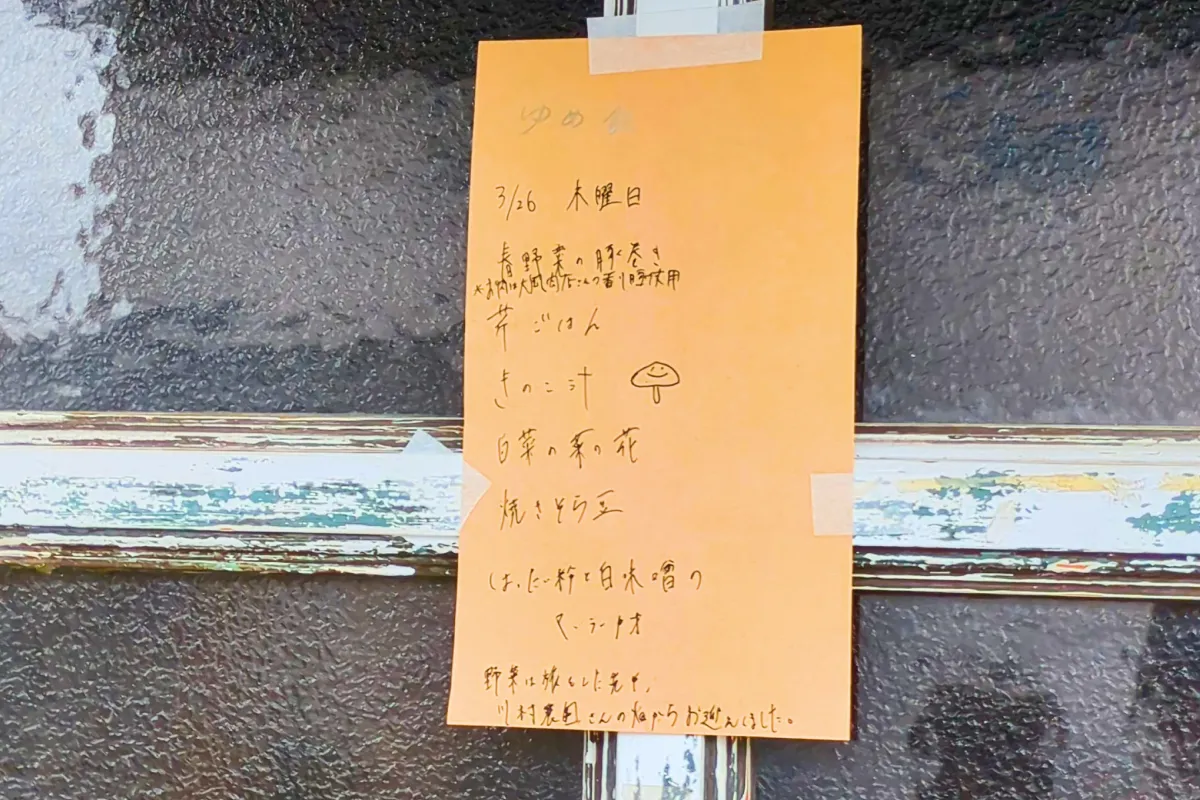 ゆめ
3/26 木曜日
春野菜の豚巻き
※お肉は大風肉店さんの香り豚使用
芹ごはん
きのこ汁
白菜の菜の花
焼きそら豆
はったい粉と白味噌の
マーラーカオ
野菜は旅をした先や、
川村農園さんの畑からお迎えしました。